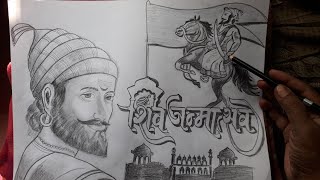 शिव जन्मोत्सव